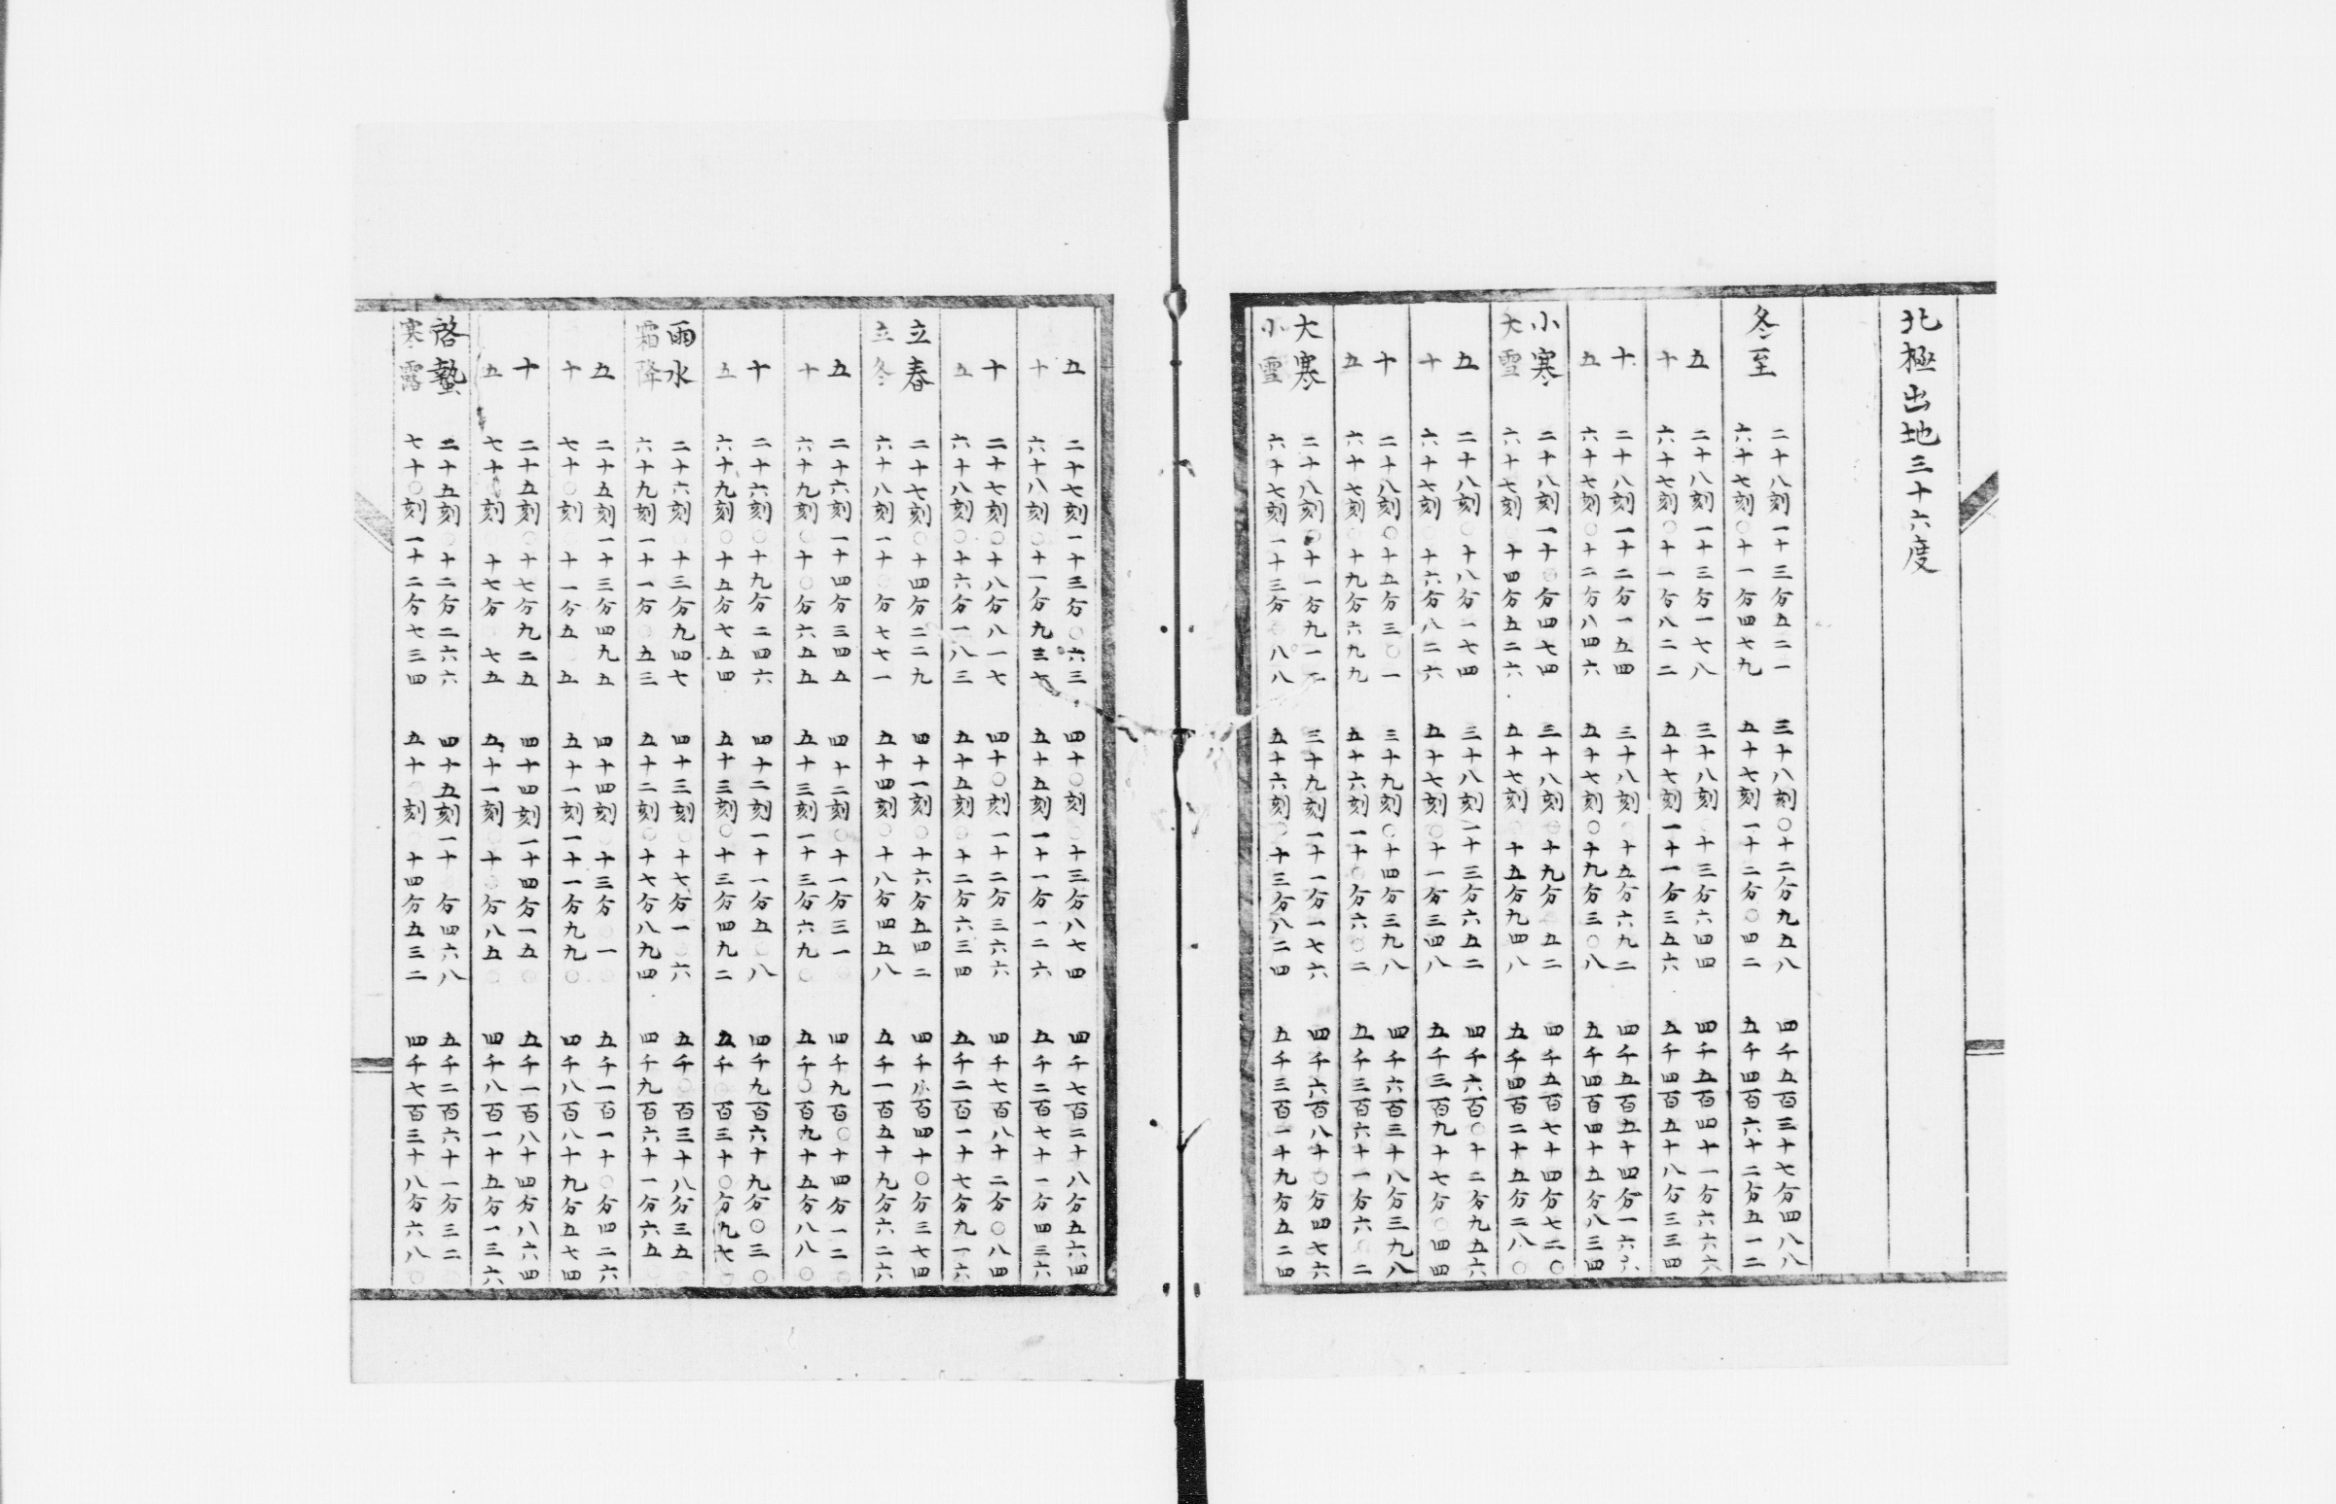 北極出地三十六度
冬至
二十八刻一十三分五二一　三十八刻〇十二分九五八　四千五百三十七分四八八
六十七刻〇十一分四七九　五十七刻一十二分〇四二　五千四百六十二分五一二
五　二十八刻一十三分一七八　三十八刻〇十三分六四四　四千五百四十一分六六六
十　六十七刻〇十一分八二二　五十七刻一十一分三五六　五千四百五十八分三三四
十　二十八刻一十二分一五四　三十八刻〇十五分六九二　四千五百五十四分一六六
五　六十七刻〇十二分八四六　五十七刻〇十九分三〇八　五千四百四十五分八三四
小寒　二十八刻一十〇分四七四　三十八刻〇十九分〇五二　四千五百七十四分七二〇
大雪　六十七刻〇十四分五二六　五十七刻〇十五分九四八　五千四百二十五分二八〇
五　二十八刻〇十八分一七四　三十八刻一十三分六五二　四千六百〇十二分九五六
十　六十七刻〇十六分八二六　五十七刻〇十一分三四八　五千三百九十七分〇四四
十　二十八刻〇十五分三〇一　三十九刻〇十四分三九八　四千六百三十八分三九八
五　六十七刻〇十九分六九九　五十六刻一十〇分六〇二　五千三百六十一分六〇二
大寒　二十八刻〇十一分九一二　三十九刻一十一分一七六　四千六百八十〇分四七六
小雪　六十七刻一十三分〇八八　五十六刻〇十三分八二四　五千三百一十九分五二四
五　二十七刻一十三分〇六三　四十〇刻〇十三分八七四　四千七百二十八分五六四
十　六十八刻〇十一分九三七　五十五刻一十一分一二六　五千二百七十一分四三六
十　二十七刻〇十八分八一七　四十〇刻一十二分三六六　四千七百八十二分〇八四
五　六十八刻〇十六分一八三　五十五刻〇十二分六三四　五千二百一十七分九一六
立春　二十七刻〇十四分二二九　四十一刻〇十六分五四二　四千八百四十〇分三七四
立冬　六十八刻一十〇分七七一　五十四刻〇十八分四五八　五千一百五十九分六二六
五　二十六刻一十四分三四五　四十二刻〇十一分三一〇　四千九百〇十四分一二〇
十　六十九刻〇十〇分六五五　五十三刻一十三分六九〇　五千〇百九十五分八八〇
十　二十六刻〇十九分二四六　四十二刻一十一分五〇八　四千九百六十九分〇三〇
五　六十九刻〇十五分七五四　五十三刻〇十三分四九二　五千〇百三十〇分九七〇
雨水　二十六刻〇十三分九四七　四十三刻〇十七分一〇六　五千〇百三十八分三五〇
霜降　六十九刻一十一分〇五三　五十二刻〇十七分八九四　四千九百六十一分六五〇
五　二十五刻一十三分四九五　四十四刻〇十三分〇一〇　五千一百一十〇分四二六
十　七十〇刻〇十一分五〇五　五十一刻一十一分九九〇　四千八百八十九分五七四
十　二十五刻〇十七分九二五　四十四刻一十四分一五〇　五千一百八十四分八六四
五　七十〇刻〇十七分〇七五　五十一刻〇十〇分八五〇　四千八百一十五分一三六
啓蟄　二十五刻〇十二分二六六　四十五刻一十〇分四六八　五千二百六十一分三二〇
寒露　七十〇刻一十二分七三四　五十〇刻〇十四分五三二　四千七百三十八分六八〇